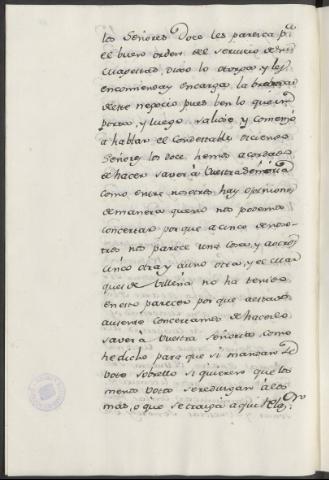 los Señores Doce les parezca pª
el buen orden del servicio de su
Magestad, Dixo lo otorga, y les
encomienda y encarga la brevedad
deste negocio, pues ven lo que im
porta, y luego salioso y comenzo
a hablar el Condestable diciendo
Señores los doce hemos acordado
de hacer saver à Vuestra Señoria
como entre nosotros hay opiniones
demanera que no nos podemos
concertar por que a cinco de noso-
tros nos parece una cosa, y aotros
cinco otra y a uno otra, y el Mar
ques de Villena no ha tenido
en esto parecer por que aestado
ausente concertamos de hacerlo
saver à Vuestra Señoria como
he dicho para que si mandan de
voto sobrello si quieren que los
menos Votos sereduzgan à los
mas, o que se traiga aqui Relaon